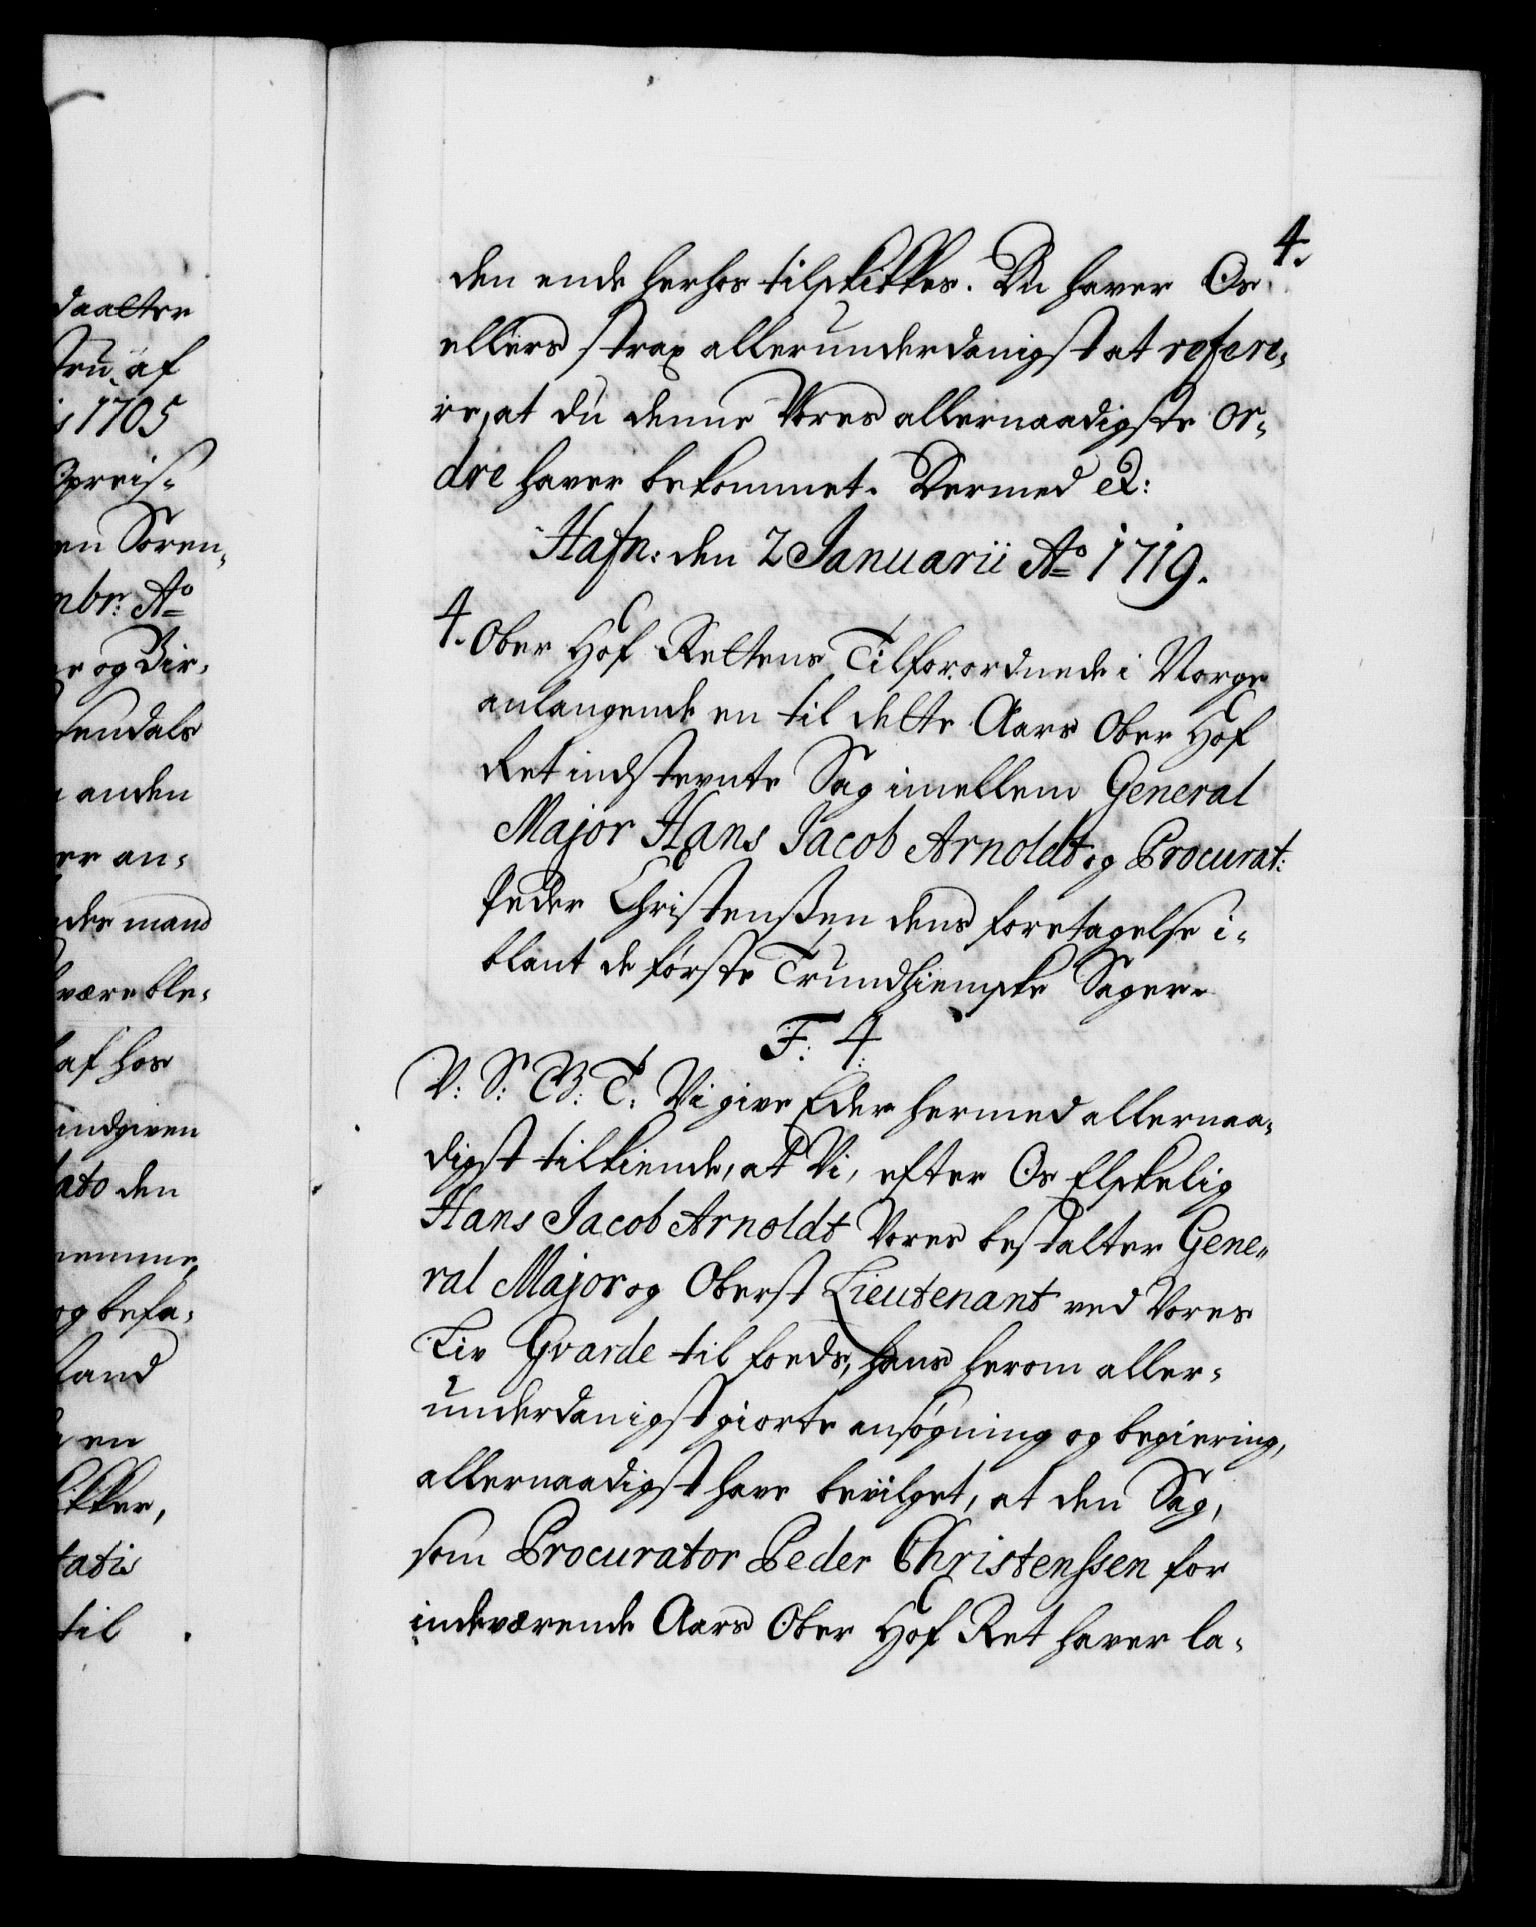 4.
den ende herhos tilskikkes. Du haver Os
ellers strax allerunderdanigst at refere-
re, at du denne Vores allernaadigste Or-
dre haver bekommet. Dermed etc:
Hafn: den 2 Januarii Ao 1719.
4. Ober Hof Rettens Tilforordnede i Norge
anlangende en til dette Aars Ober Hof
Ret indstevnte Sag imellem General
Major Hans Jacob Arnoldt og Procurat:
Peder Christenssen dens foretagelse i-
blant de første Trundhiemske Sager.
F: 4:
V: S: G: T: Vi give Eder hermed allernaa-
digst tilkiende, at Vi, efter Os Elskelig
Hans Jacob Arnoldt Vores bestalter Gene-
ral Major og Oberst Lieutenant ved Vores
Liv Gvarde til foeds, hans herom aller-
underdanigst giorte ansøgning og begiering,
allernaadigst have bevilget, at den Sag,
som Procurator Peder Christenssen for
indeværende Aars Ober Hof Ret haver la-
daatter
af
1705
en Soren-
mbr: Ao
og Bir-
sendals
anden
er an-
mand
være ble-
af hos
indgiven
dato den
og befa-
land
en
til